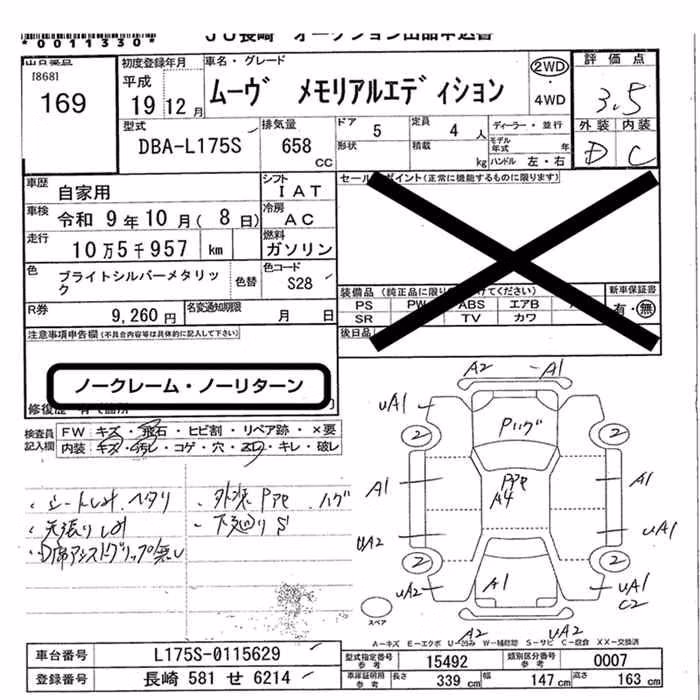 *0011330*
JU長崎 オークション出品申込書
[868]
169
初度登録年月
平成
19年12月
車名・グレード
ムーヴ メモリアルエディション
2WD
・
4WD
評価点
3.5
外装 内装
D C
型式
DBA-L175S
排気量
658
CC
ドア 5
形状
定員 4 人
積載 kg
ディーラー・並行
モデル年式 年
ハンドル 左・右
車歴
自家用
シフト
IAT
車検
令和 9年10月(8日)
冷房
AC
走行
10万5千957 km
燃料
ガソリン
色
ブライトシルバーメタリック
色替
色コード
S28
R券
9,260円
名変通知期限
月 日
セールスポイント(正常に機能するものに限ります)
装備品(純正品に限り
けてください)
PS PW ABS エアB
SR TV カワ
後日品
新車保証書
有・無
注意事項申告欄(不具合内容等は具体的に記入して下さい)
ノークレーム・ノーリターン
修復歴
検査員
記入欄
FW キズ・飛石・ヒビ割・リペア跡・×要
内装 キズ・汚レ・コゲ・穴・ ・キレ・破レ
・シートしみ、ヘタリ
・天張りしみ
・D席アシストグリップ無し
・外装 PPe ハゲ
・下廻りS
A2 A1
uA1
2 2
Pハゲ
A1
PPe
A4
A1
uA2
uA1
2 2
uA2
A1
uA1
C2
スペア
A2 uA2
A-キズ E-エクボ U-凹み W-補修跡 S-サビ C-腐食 XX-交換済
車台番号
L175S-0115629
登録番号
長崎 581 せ 6214
型式指定番号
参考
15492
類別区分番号
参考
0007
車庫証明用
参考
長さ 339 cm
幅 147 cm
高さ 163 cm